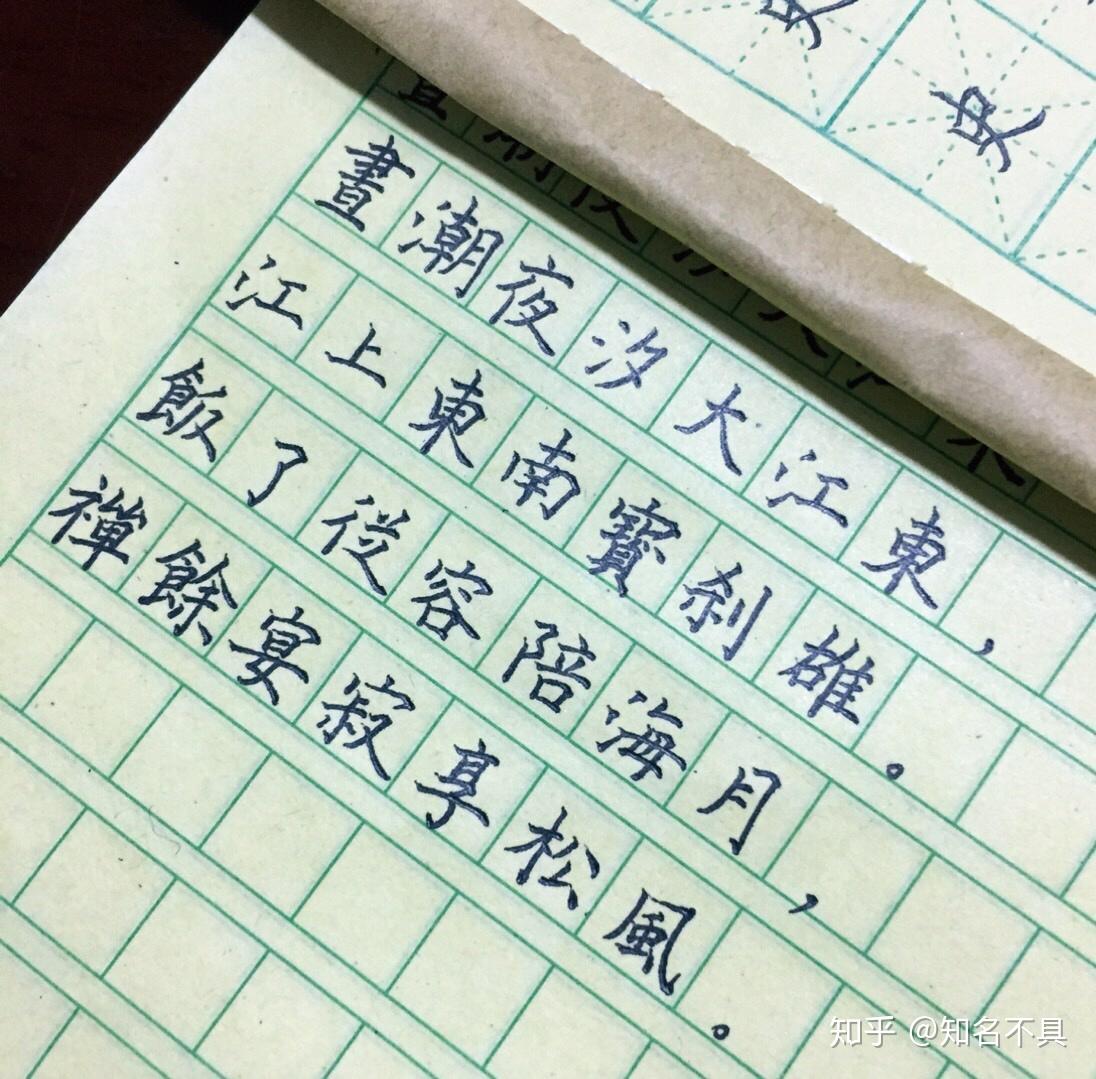 史
史
晝潮夜汐大江東，
江上東南寶刹雄。
飯了從容陪海月，
禪餘宴寂享松風。
知乎 @知名不具